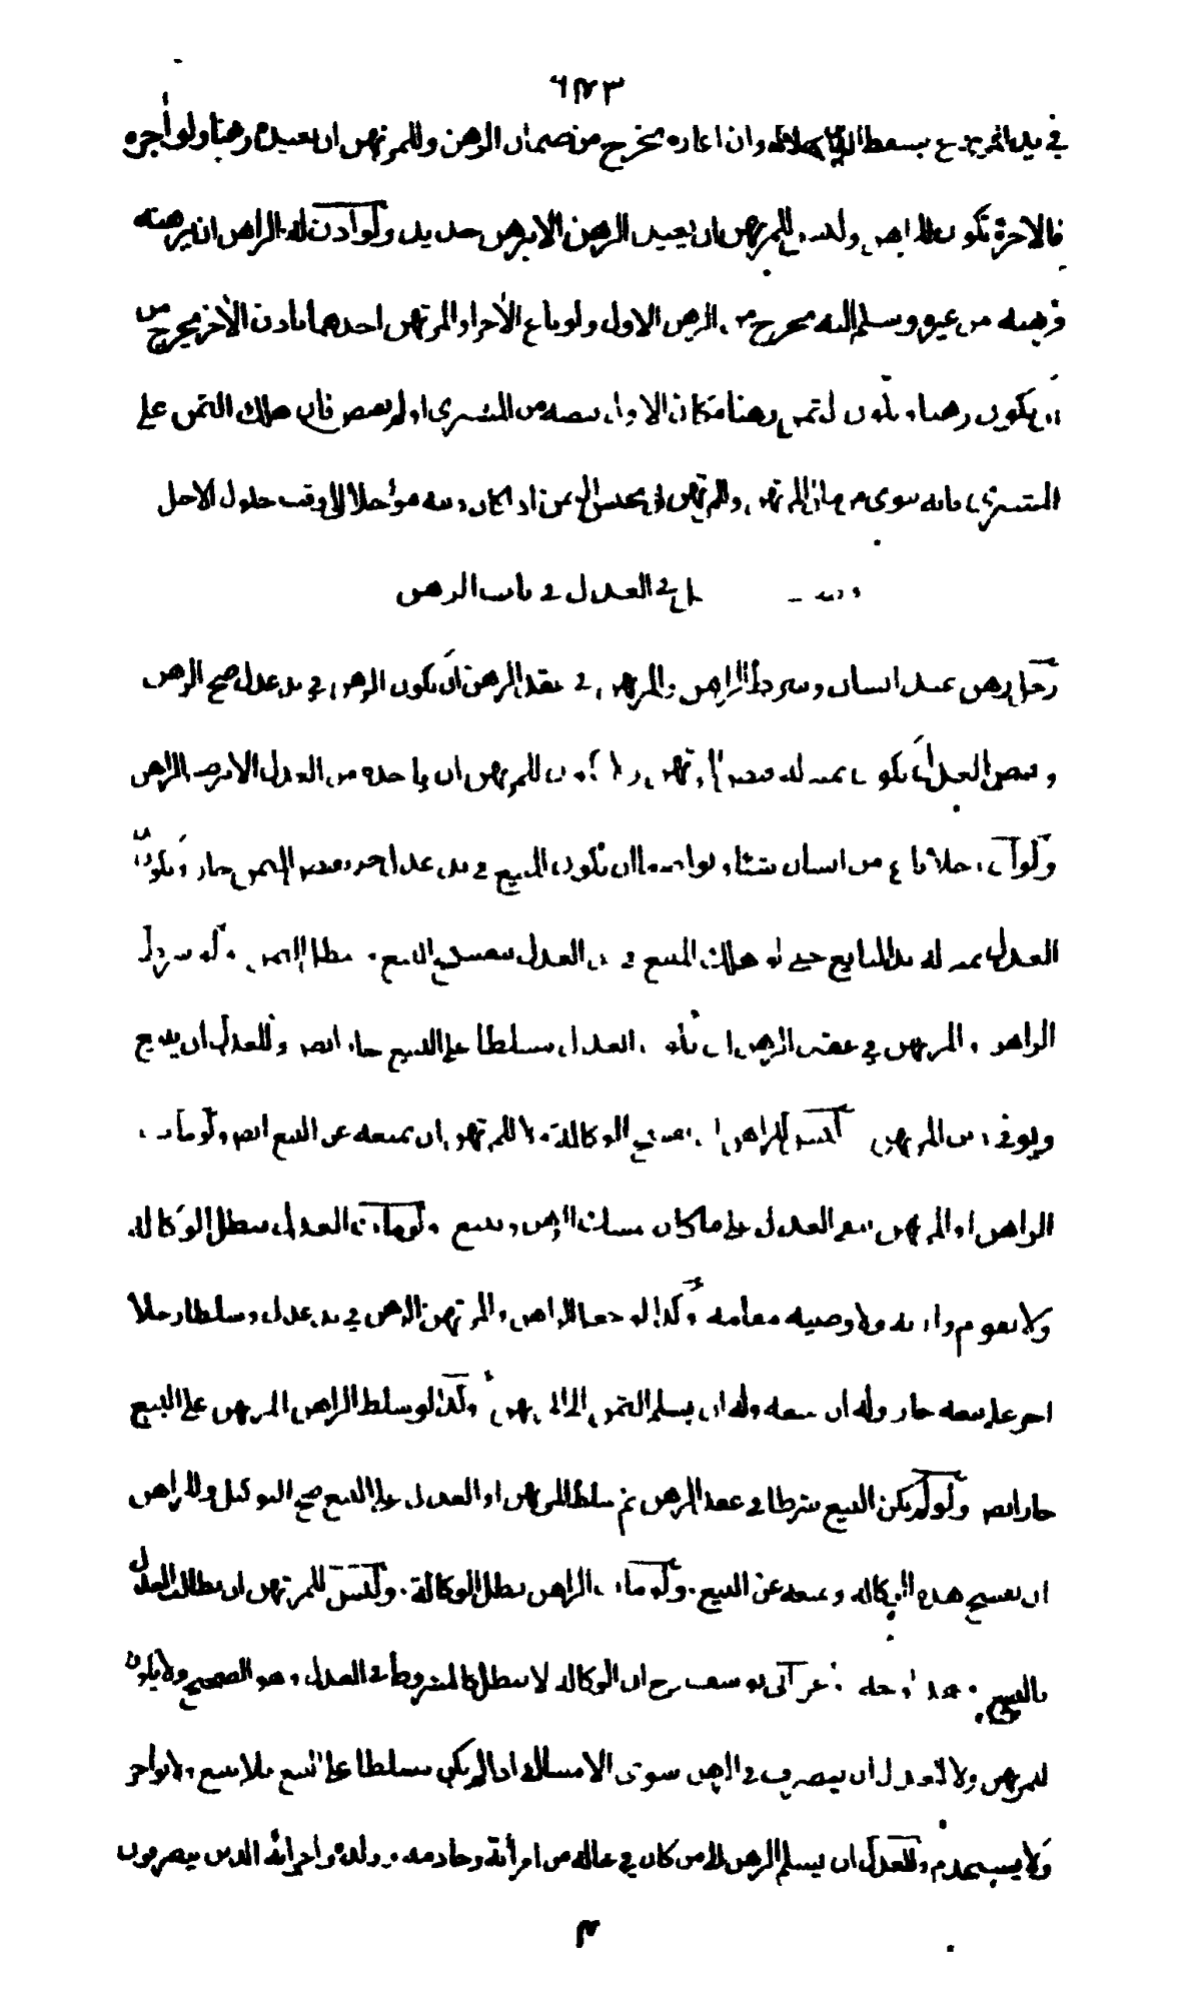 ٦٤٣
في يد المرتهن يسقط الدين بهلاكه وان اعاره يخرج من ضمان الرهن وللمرتهن ان يعيده رهنا ولو اجره
فالاجرة تكون للراهن وليس للمرتهن ان يعيد الرهن الا برهن جديد ولو اذن له الراهن ان يرهنه
فرهنه من غيره وسلم اليه يخرج من الرهن الاول ولو باع الراهن او المرتهن احدهما باذن الآخر يخرج من
ان يكون رهنا ويكون الثمن رهنا مكان الاول قبضه من المشتري او لم يقبض فان هلك الثمن على
المشتري فانه توى من مال المرتهن وللمرتهن ان يحبس الثمن اذا كان دينه مؤجلا الى وقت حلول الاجل
باب في العدل في باب الرهن
رجل رهن عند انسان وشرط الراهن والمرتهن في عقد الرهن ان يكون الرهن في يد عدل صح الرهن
وقبض العدل يكون بمنزلة قبض المرتهن ولا يكون للمرتهن ان ياخذه من العدل الا برضا الراهن
ولو ان رجلا باع من انسان شيئا وتواضعا ان يكون المبيع في يد عدل حتى يقبض الثمن جاز ويكون
العدل بمنزلة يد البايع حتى لو هلك المبيع في يد العدل ينفسخ البيع وبطل الثمن ولو شرط
الراهن والمرتهن في عقد الرهن ان يكون العدل مسلطا على البيع جاز ايضا وللعدل ان يبيع
ويوفي دين المرتهن وليس للراهن ان يفسخ الوكالة ولا للمرتهن ان يمنعه عن البيع ايضا ولو مات
الراهن او المرتهن يبقى العدل على ما كان يمسك الرهن ويبيع ولو مات العدل يبطل الوكالة
ولا يقوم وارثه ولا وصيه مقامه وكذا لو جعل الراهن والمرتهن الرهن في يد عدل وسلطا رجلا
اخر على بيعه جاز وله ان يبيعه وله ان يسلم الثمن الى المرتهن وكذا لو سلط الراهن المرتهن على البيع
جاز ايضا ولو لم يكن البيع شرطا في عقد الرهن ثم سلط المرتهن او العدل على البيع صح التوكيل وللراهن
ان يفسخ هذه الوكالة ويمنعه عن البيع ولو مات الراهن يبطل الوكالة وليس للمرتهن ان يطالب العدل
بالبيع عن ابي يوسف رح ان الوكالة لا يبطل كالمشروط في العدل وهو الصحيح ولا يكون
للمرتهن ولا للعدل ان يتصرف في الرهن سوى الامساك اذا لم يكن مسلطا على البيع فلا يبيع ولا يؤاجر
ولا يستخدم وللعدل ان يسلم الرهن الى من كان في عياله من امرأته وخادمه وولده واجرائه الذين يتصرفون